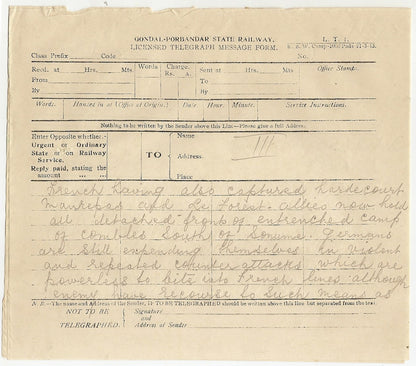 GONDAL-PORBANDAR STATE RAILWAY. L. T. 1.
LICENSED TELEGRAPH MESSAGE FORM.
Class Prefix Code No.
Recd. at Hrs. Mts. Words Charge. Sent at Hrs. Mts Office Stamp.
Rs. a.
From To
By By
Words. Handed in at (Office of Origin.) Date Hour. Minute. Service Instructions.
Nothing to be written by the Sender above this Line—Please give a full Address.
Enter Opposite whether:-
Urgent or Ordinary
State or on Railway
Service.
Reply paid, stating the
amount
TO
Name
Address.
Place
French having also captured hardecourt
Maurepas and Le Forest. Allies now hold
all detached front of entrenched camp
of combles South of Somme. Germans
are still expending themselves in violent
and repeated counter attacks which are
powerless to bite into French lines although
enemy have recourse to such means as
N. B.—The name and Address of the Sender, if TO BE TELEGRAPHED should be written above this line but separated from the text.
NOT TO BE
TELEGRAPHED.
Signature
and
Address of Sender